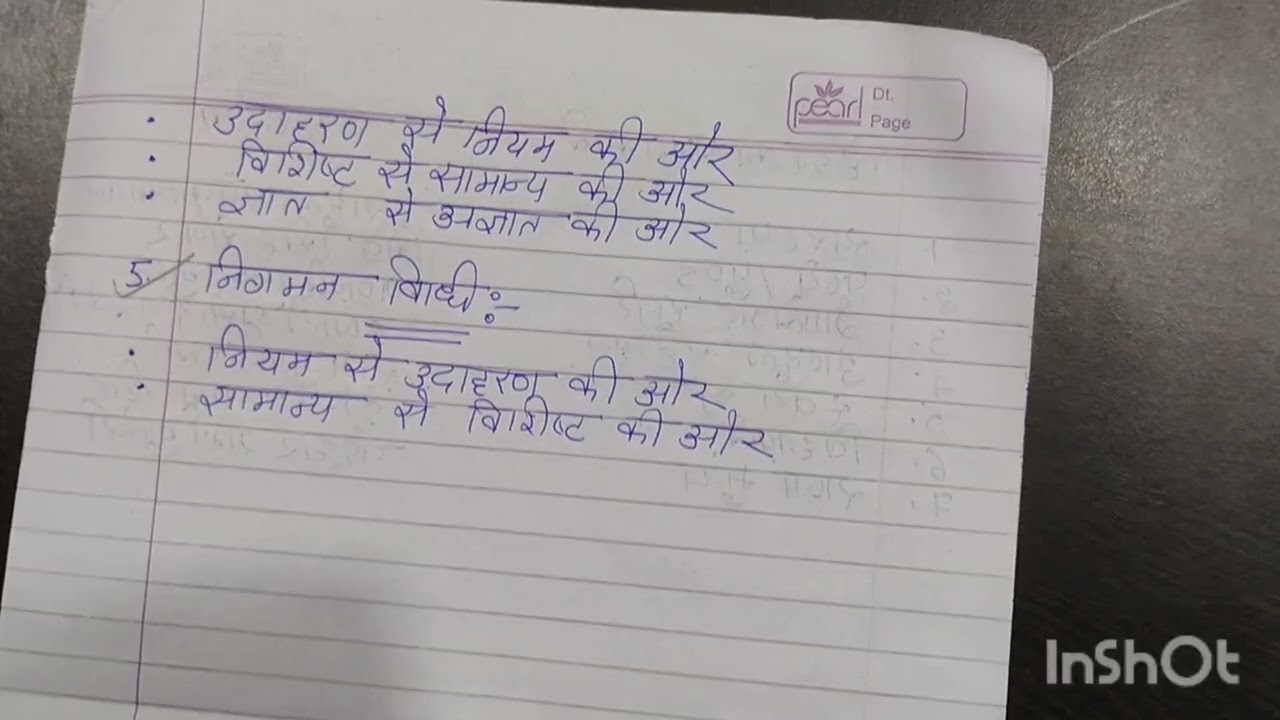 pearl
Dt.
Page
• उदाहरण से नियम की ओर
• विशिष्ट से सामान्य की ओर
• ज्ञात से अज्ञात की ओर
5. निगमन विधी:-
• नियम से उदाहरण की ओर
• सामान्य से विशिष्ट की ओर
InShOt